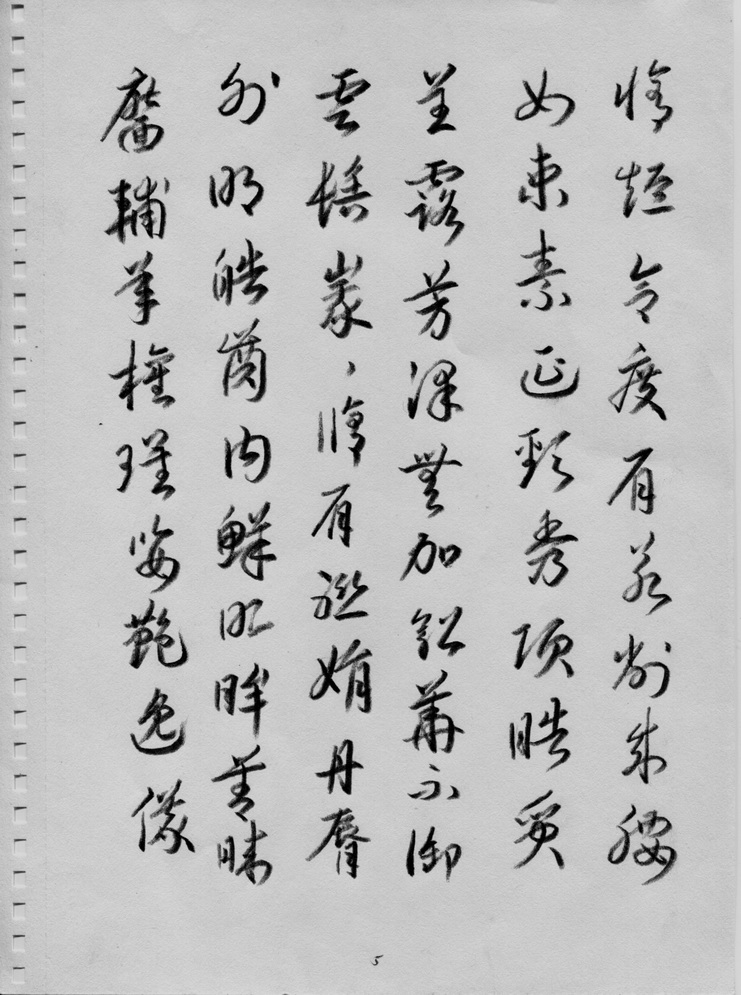 脩短合度肩若削成腰
如束素延頸秀項皓質
呈露芳澤無加鉛華不御
雲髻峩、脩眉聯娟丹脣
外朗皓齒內鮮明眸善睞
靨輔承權瓌姿艷逸儀
5